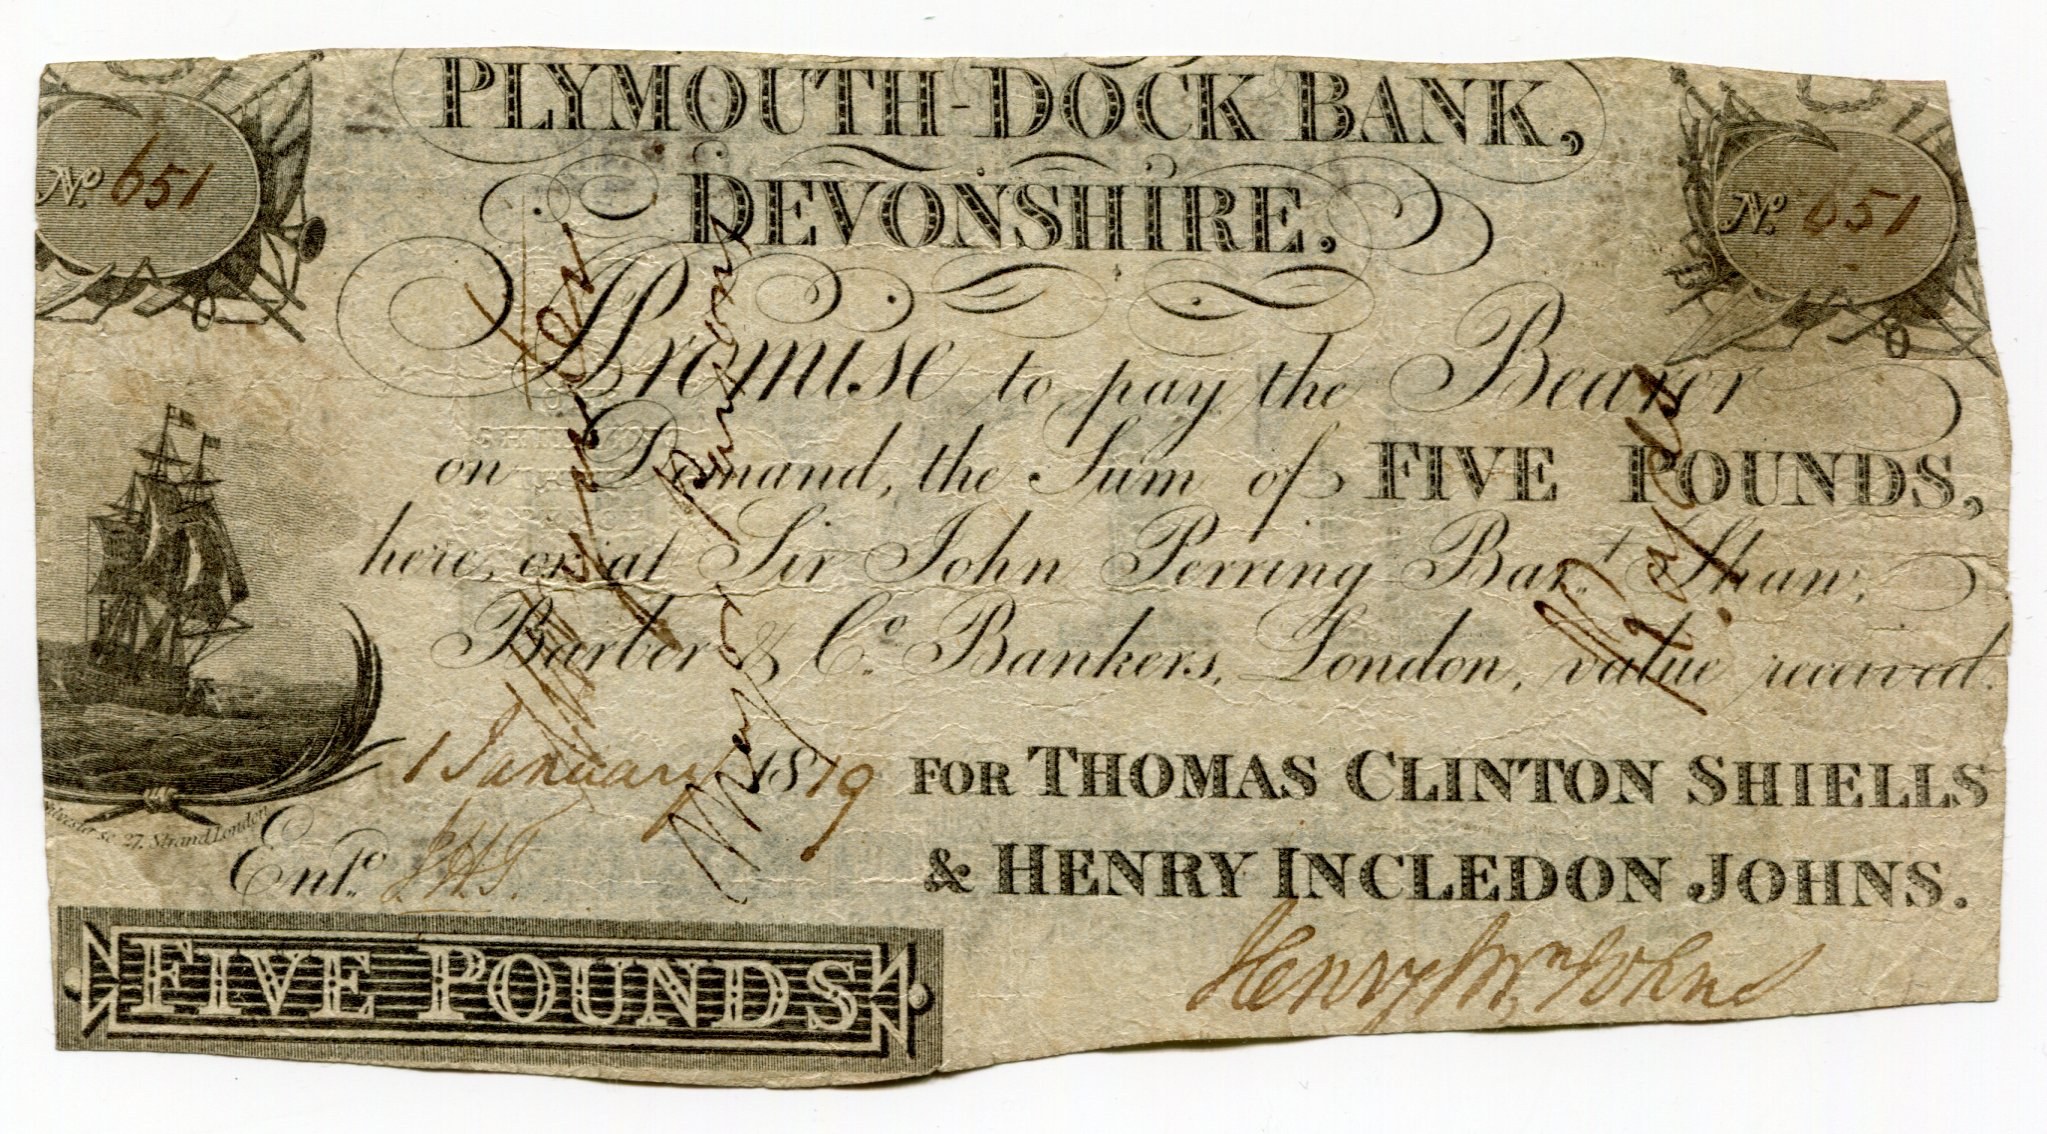 PLYMOUTH-DOCK BANK,
DEVONSHIRE.
No. 651
No. 651
I Promise to pay the Bearer
on Demand, the Sum of FIVE POUNDS,
here, or at Sir John Perring Bar.t Shaw,
Barber & Co. Bankers, London, value received.
1 January 1819 FOR THOMAS CLINTON SHIELLS
& HENRY INCLEDON JOHNS.
sc 27, Strand London
Ent.d
FIVE POUNDS
Henry Wm Johns